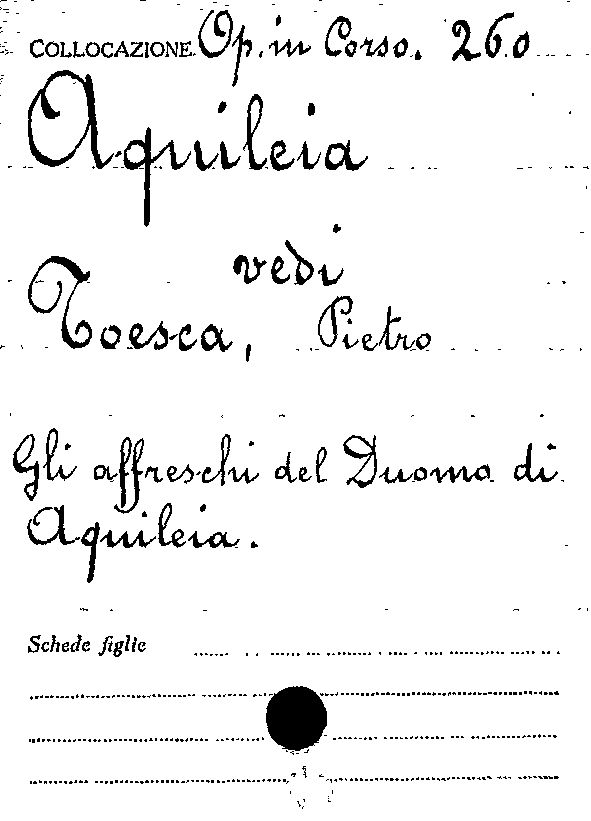 COLLOCAZIONE Op. in Corso. 260
Aquileia
vedi
Toesca, Pietro
Gli affreschi del Duomo di
Aquileia.
Schede figlie